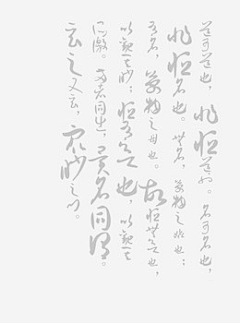 道可道也，非恒道也。名可名也，
非恒名也。無名，萬物之始也；
有名，萬物之母也。故恒無欲也，
以觀其妙；恒有欲也，以觀其
所徼。兩者同出，異名同謂。
玄之又玄，衆妙之門。